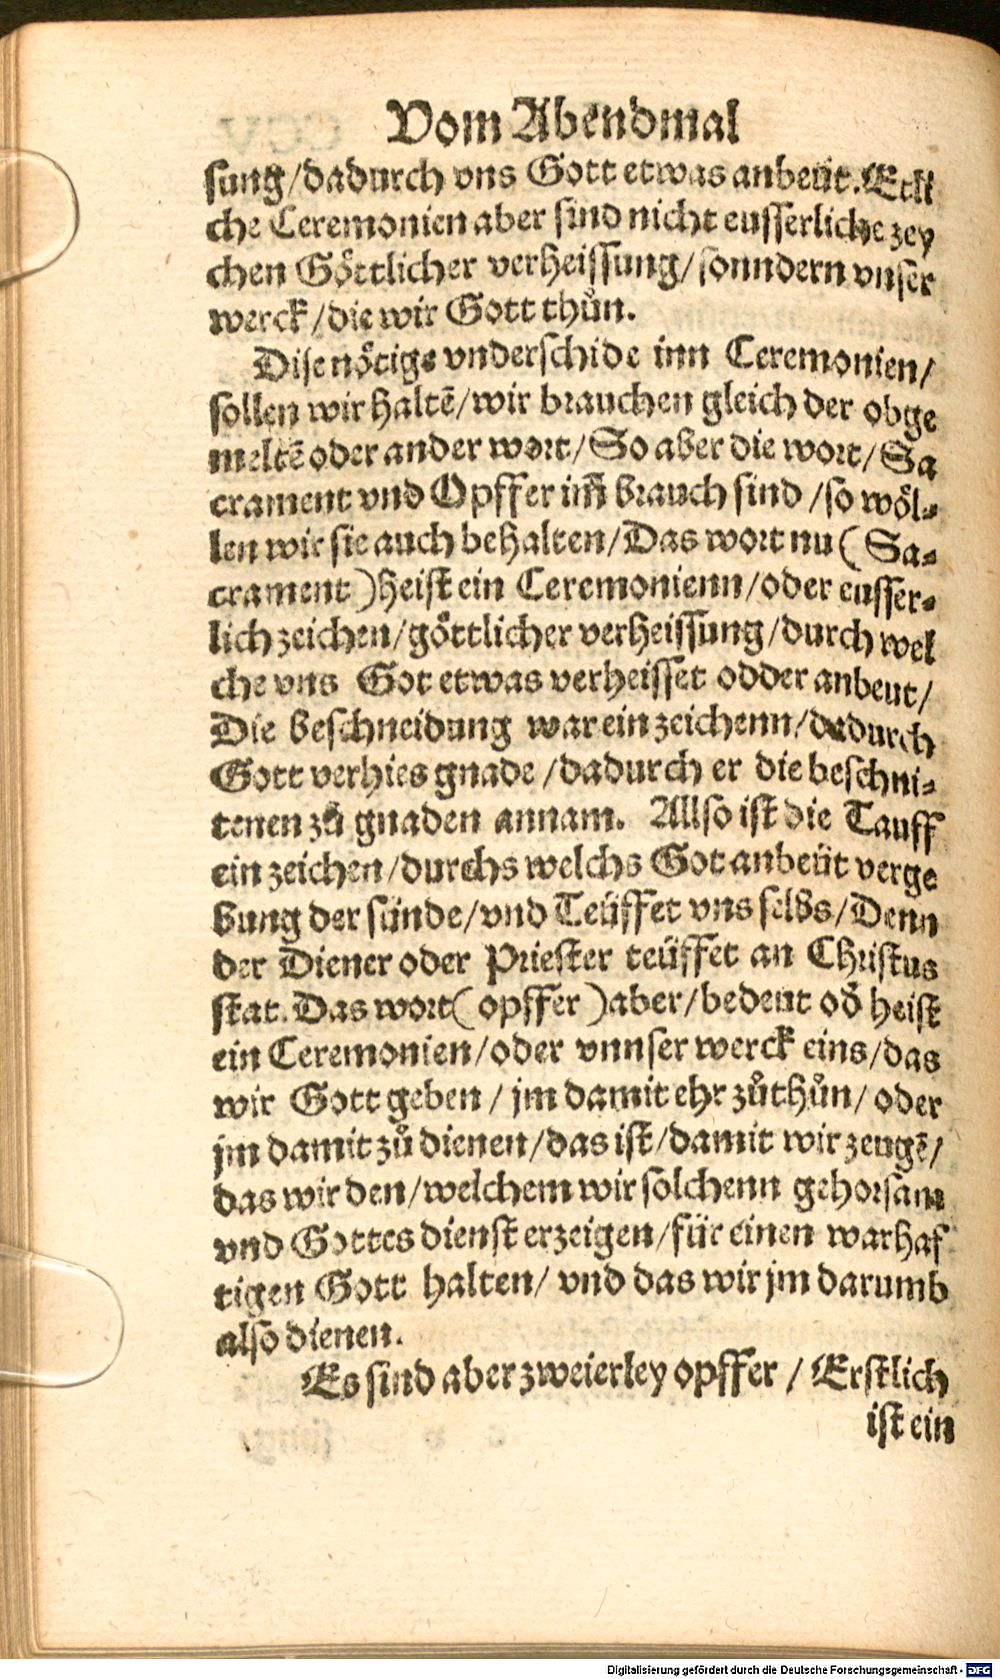 Vom Abendmal
sung/dadurch vns Gott etwas anbeüt. Etli
che Ceremonien aber sind nicht eusserliche zey
chen Göttlicher verheissung/sonndern vnser
werck/die wir Gott thůn.
Dise nötige vnderschide inn Ceremonien/
sollen wir haltẽ/wir brauchen gleich der obge
meltẽ oder ander wort/So aber die wort/Sa
crament vnd Opffer im̃ brauch sind/so wöl-
len wir sie auch behalten/Das wort nu (Sa-
crament) heist ein Ceremonienn/oder eusser-
lich zeichen/göttlicher verheissung/durch wel
che vns Got etwas verheisset odder anbeut/
Die beschneidung war ein zeichenn/dadurch
Gott verhies gnade/dadurch er die beschni-
tenen zů gnaden annam. Allso ist die Tauff
ein zeichen/durchs welchs Got anbeüt verge
bung der sünde/vnd Teüffet vns selbs/Denn
der Diener oder Priester teüffet an Christus
stat. Das wort (opffer) aber/bedeut od̾ heist
ein Ceremonien/oder vnnser werck eins/das
wir Gott geben/jm damit ehr zůthůn/oder
jm damit zů dienen/das ist/damit wir zeugẽ/
das wir den/welchem wir solchenn gehorsam
vnd Gottes dienst erzeigen/für einen warhaf
tigen Gott halten/vnd das wir jm darumb
also dienen.
Es sind aber zweierley opffer/Erstlich
ist ein
Digitalisierung gefördert durch die Deutsche Forschungsgemeinschaft - DFG